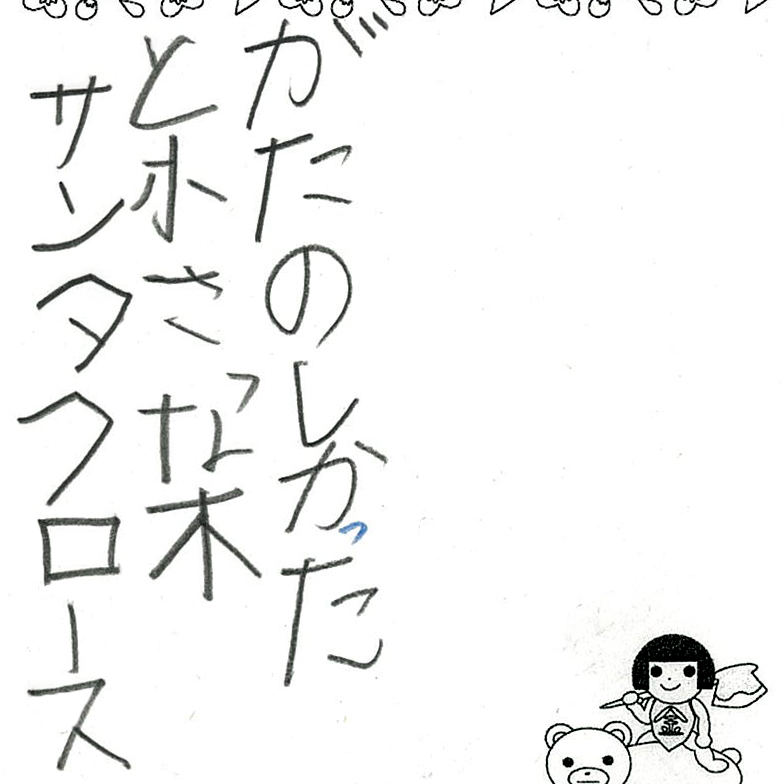 サンタクロース
とホさな木
がたのしかった
金